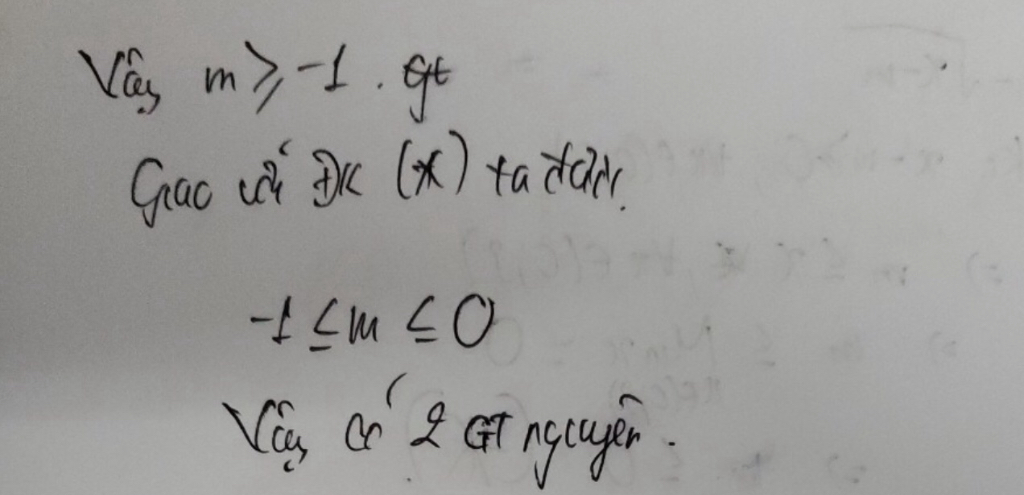 Vậy m ≥ -1. gt
Giao với ĐK (*) ta được.
-1 ≤ m ≤ 0
Vậy có 2 GT nguyên.